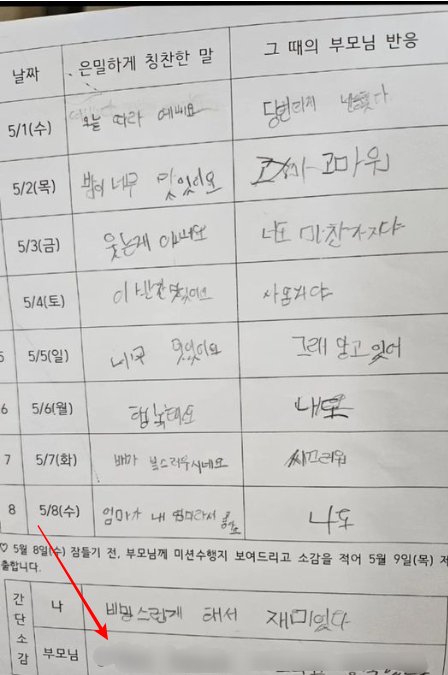 날짜 은밀하게 칭찬한 말 그 때의 부모님 반응
5/1(수) 오늘 따라 예뻐요
5/2(목) 밥이 너무 맛있어요 고마워
5/3(금) 웃는게 나도 마찬가지다
5/4(토) 맛있어요
5 5/5(일) 너무 멋있어요 그래 알고 있어
6 5/6(월) 행복해요 내도
7 5/7(화) 배가 시끄러워
8 5/8(수) 엄마가 내 엄마라서 좋아요 나도
♡ 5월 8일(수) 잠들기 전, 부모님께 미션수행지 보여드리고 소감을 적어 5월 9일(목) 제
출합니다.
간단소감 나 비밀스럽게 해서 재미있다
부모님